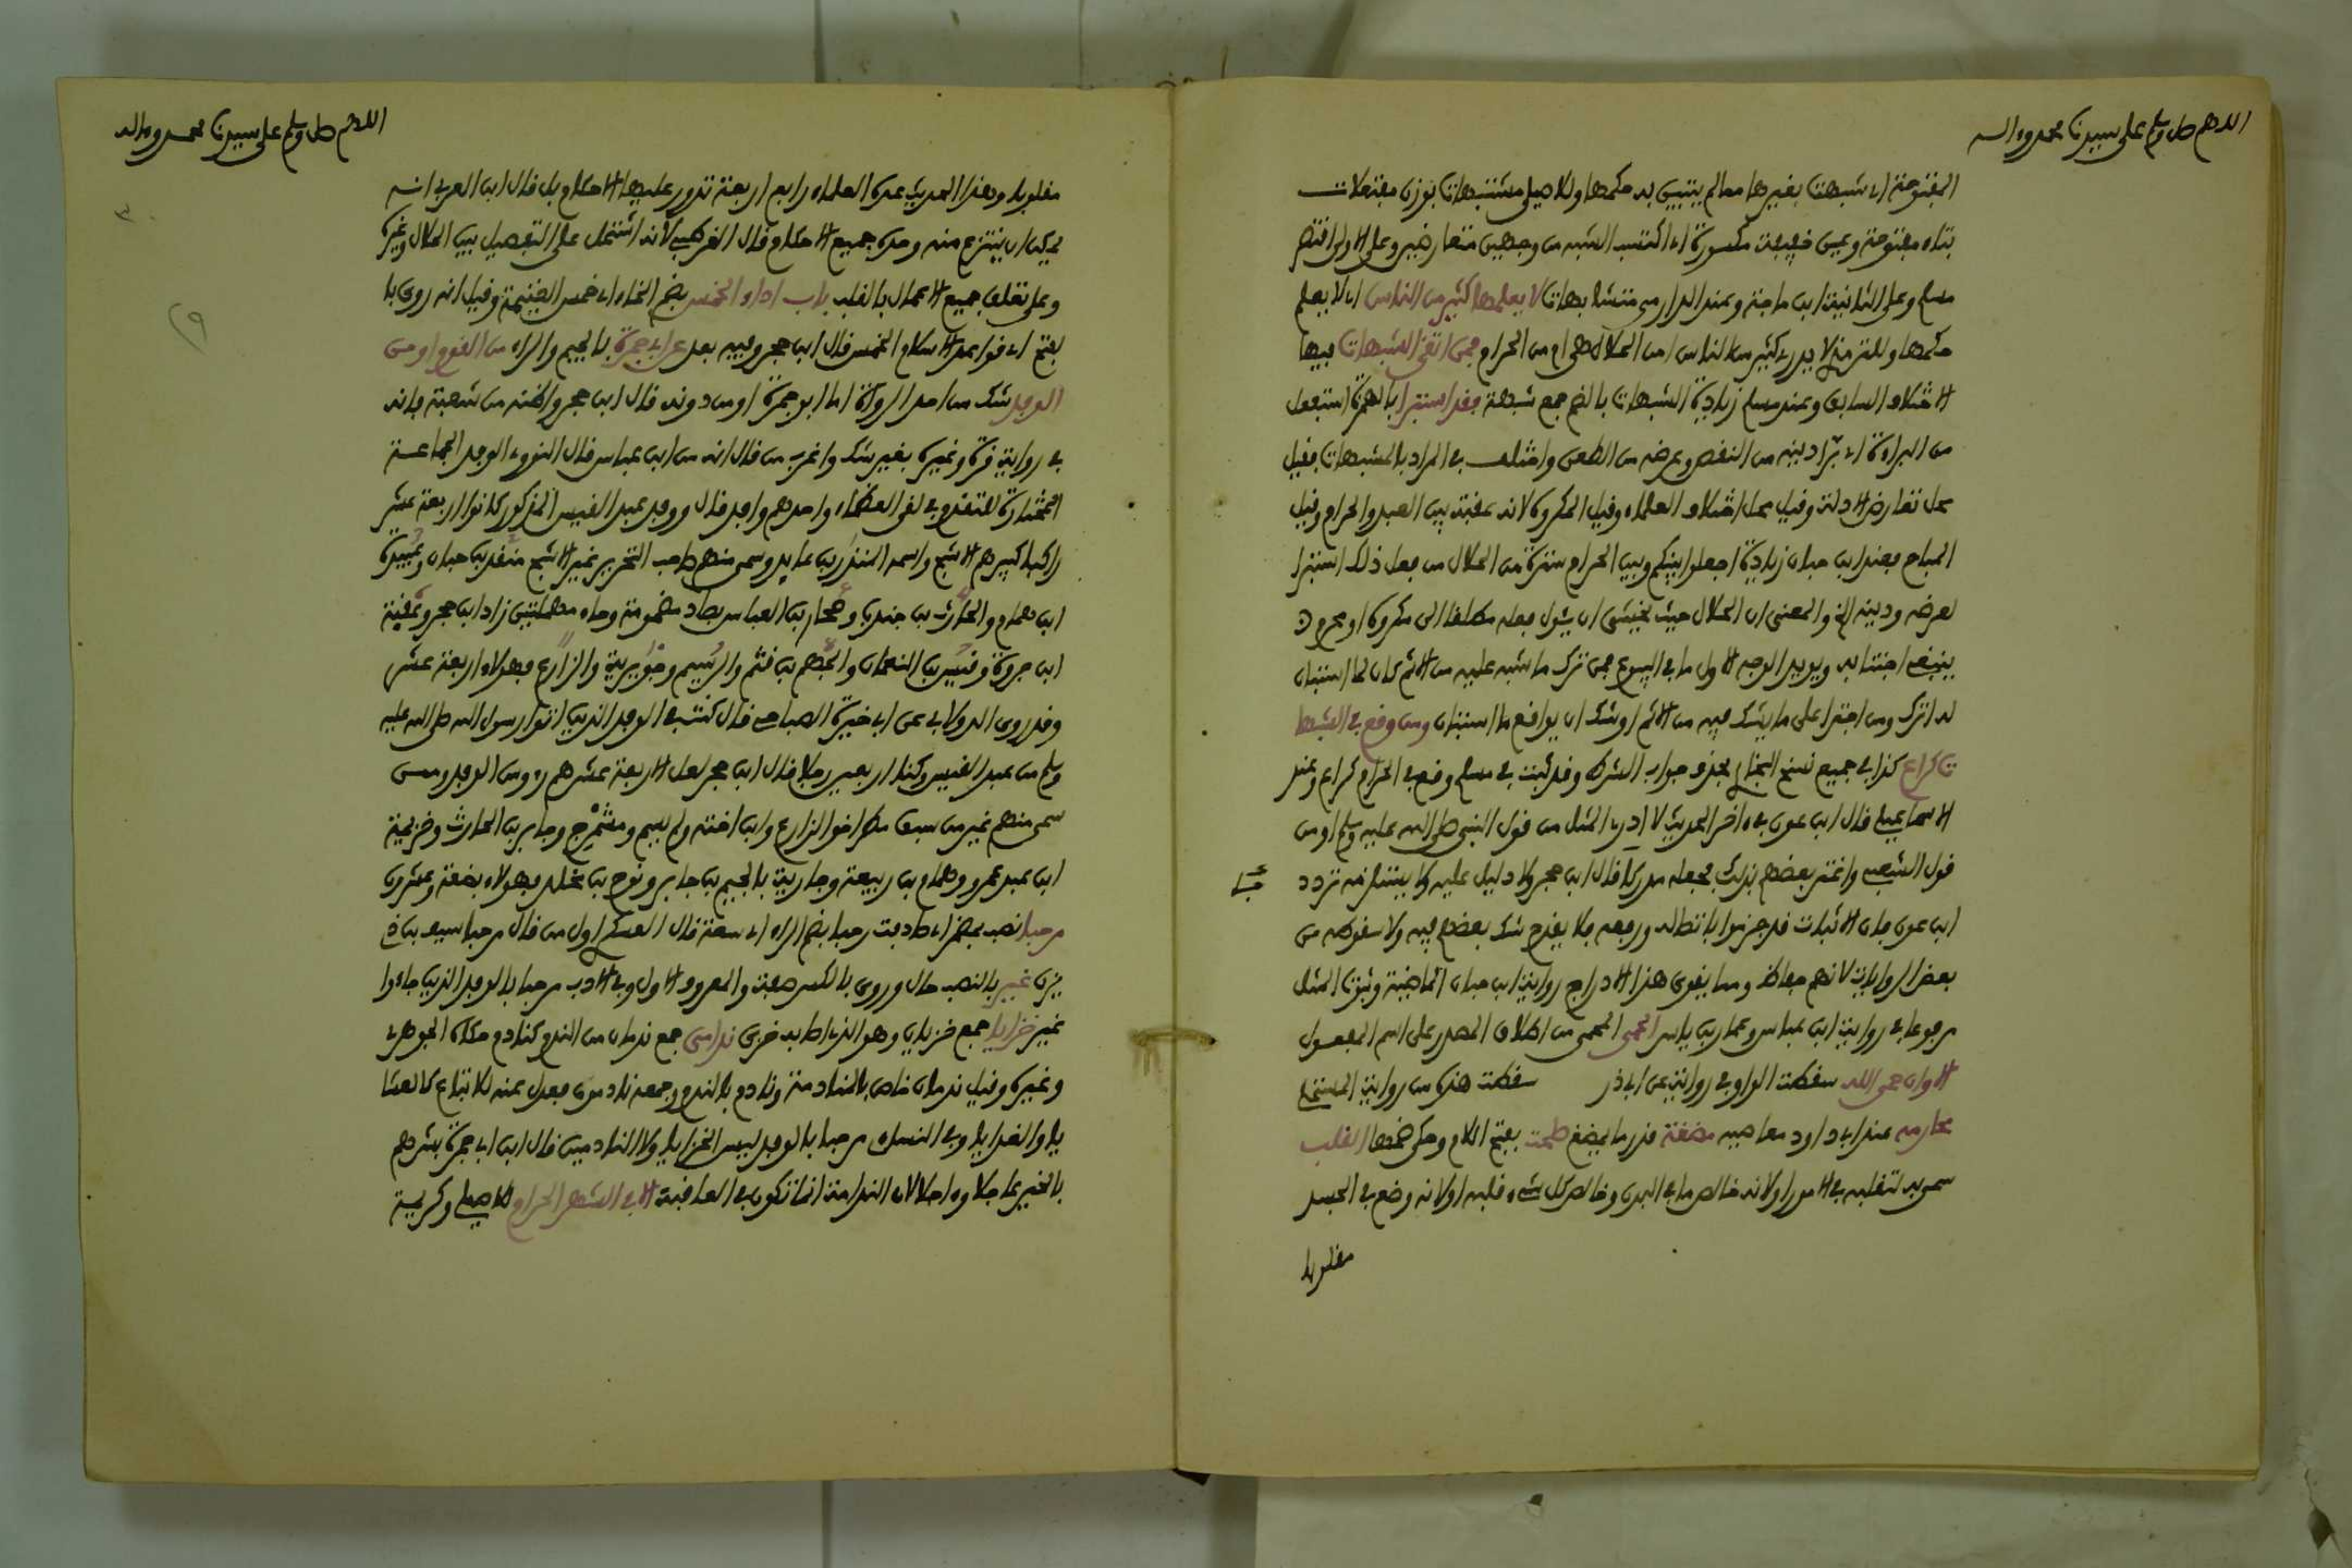 اللهم صل وسلم على سيدنا محمد وءاله
المفتوحة اى شبهت بغيرها مما لم يتبين به حكمها وللاصيلى مشتبهات بوزن مفتعلات
بتاء مفتوحة وعين خفيفة مكسورة اى اكتسب الشبه من وجهين متعارضين وعلى الاولى اقتصر
مسلم وعلى الثانية ابن ماجة وعند الدارمى متشابهات لا يعلمها كثير من الناس اى لا يعلم
حكمها وللترمذى لا يدرى كثير من الناس امن الحلال هى ام من الحرام فمن اتقى المشبهات فيها
الاختلاف السابق وعند مسلم زيادة الشبهات بالضم جمع شبهة فقد استبرا بالهمزة استفعل
من البراءة اى برّا دينه من النقص وعرضه من الطعن واختلف فى المراد بالمشبهات فقيل
محل تعارض الادلة وقيل محل اختلاف العلماء وقيل المكروه لانه عقبة بين العبد والحرام وقيل
المباح فعند ابن حبان زيادة اجعلوا بينكم وبين الحرام سترة من الحلال من فعل ذلك استبرا
لعرضه ودينه الخ والمعنى ان الحلال حيث يخشى ان يئول فعله مطلقا الى مكروه او محرم
ينبغى اجتنابه ويويد الوجه الاول ما فى البيوع فمن ترك ما شبه عليه من الاثم كان لما استبان
له اترك ومن اجترا على ما يشك فيه من الاثم اوشك ان يواقع ما استبان ومن وقع فى الشبها
ت كراع كذا فى جميع نسخ البخارى بحذف جواب الشرط وقد ثبت فى مسلم وقع فى الحرام كراع وعند
الاسماعيلى قال ابن عون فى ءاخر الحديث لا ادرى المثل من قول النبى صلى الله عليه وسلم او من
قول الشعبى واغتر بعضهم بذلك فجعله مدركا قال ابن حجر ولا دليل عليه ولا يستلزمه تردد
ابن عون فان الاثبات قد جزموا باتصاله ورفعه فلا يقدح شك بعضهم فيه ولا سقوطه من
بعض الروايات لانهم حفاظ ومما يقوى هذا الادراج رواية ابن حبان الماضية وثبوت المثل
مرفوعا فى رواية ابن عباس وعمار بن ياسر الحمى المحمى من اطلاق المصدر على اسم المفعول
الا وان حمى الله سقطت الواو فى رواية عن ابى ذر سقطت هذه من رواية المستملى
محارمه عند ابى داود معاصيه مضغة قدر ما يمضغ صلحت بفتح اللام وحكى ضمها القلب
سمى به لتقلبه فى الامور او لانه خالص ما فى البدن وخالص كل شىء قلبه او لانه وضع فى الجسد
مقلوبا
اللهم صل وسلم على سيدنا محمد وءاله
مقلوبا وهذا الحديث عده العلماء رابع اربعة تدور عليها الاحكام بل قال ابن العربى انه
يمكن ان ينتزع منه وحده جميع الاحكام قال القرطبى لانه اشتمل على التفصيل بين الحلال وغيره
وعلى تعلق جميع الاعمال بالقلب باب اداء الخمس بضم الخاء اى خمس الغنيمة وقيل انه روى با
لفتح اى قواعد الاسلام الخمس قال ابن حجر وفيه بعد عن ابى جمرة بالجيم والراء من القوم او من
الوفد شك من احد الرواة اما ابو جمرة او من دونه قال ابن حجر واظنه من شعبة فانه
فى رواية قرة وغيره بغير شك واغرب من قال انه من ابن عباس قال النووى الوفد الجماعة
المختارة للتقدم فى لقى العظماء واحدهم وافد قال ووفد عبد القيس المذكور كانوا اربعة عشر
راكبا كبيرهم الاشج واسمه المنذر بن عايد وسمى منهم صاحب التحرير غير الاشج منقذ بن حبان وعبيدة
ابن همام والحارث بن جندب وصحار بن العباس بصاد مضمومة وحاء مهملتين زاد ابن حجر وعقبة
ابن جروة وقيس بن النعمان والجهم بن قثم والرسيم وجويرية والزارع فهولاء اربعة عشر
وقد روى الدولابى عن ابى خيرة الصباحى قال كنت فى الوفد الذين اتوا رسول الله صلى الله عليه
وسلم من عبد القيس وكنا اربعين رجلا قال ابن حجر لعل الاربعة عشر هم رءوس الوفد وممن
سمى منهم غير من سبق مطر اخو الزارع وابن اخته ولم يسم ومشمرج وجابر بن الحارث وخزيمة
ابن عبد عمرو وهمام بن ربيعة وجارية بالجيم بن جابر ونوح بن مخلد فهولاء بضعة وعشرون
مرحبا نصب بمضمر اى صادفت رحبا بضم الراء اى سعة قال العسكرى اول من قال مرحبا سيف بن ذى
يزن غير بالنصب حال وروى بالكسر صفة والمعروف الاول وفى الادب مرحبا بالوفد الذين جاءوا
غير خزايا جمع خزيان وهو الذى اصابه خزى ندامى جمع ندمان من الندم كنادم حكاه الجوهرى
وغيره وقيل ندمان خاص بالمنادمة ونادم بالندم وجمعه نادمون فعدل عنه للاتباع كالعشا
يا والغدايا وفى النساءى مرحبا بالوفد ليس الخزايا ولا النادمين قال ابن ابى جمرة بشرهم
بالخير عاجلا وءاجلا لان الندامة انما تكون فى العاقبة الا فى الشهر الحرام للاصيلى وكريمة